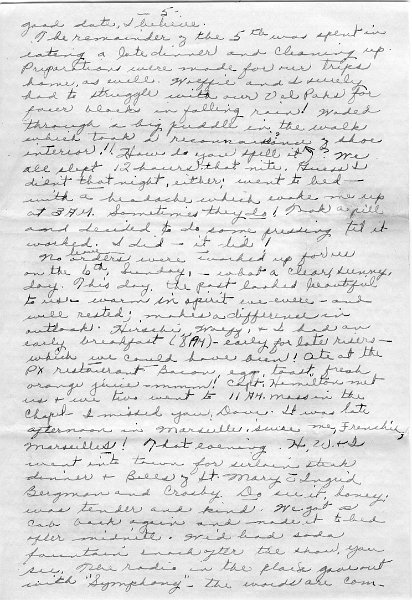 - 5 -
good date, I believe.
The remainder of the 5th was spent in
eating a late dinner and cleaning up.
Preparations were made for our trips
home, as well. and I surely
had to struggle with our Val Paks for
four blocks in falling rain! Waded
through a big puddle in the walk
which took a reconnaisance of shoe
interior!! How do you spell it? We
all slept 12 hours that nite. Guess I
didn't that night, either; went to bed -
with a headache which woke me up
at 3 AM. Sometimes they do! Took a pill
and decided to do some pressing til it
worked. I did - it did!
No orders were worked up for us
on the 6th, Sunday, - what a clear, sunny
day. This day, the post looked beautiful
to us - warm in spirit we were - and
well rested; makes a difference in
outlook. , & I had an
early breakfast (8 AM) - early for late risers -
which we could have been! Ate at the
PX restaurant - Bacon, egg, toast, fresh
orange juice - mmm! Capt. Hamilton met
us & we two went to 11 AM mass in the
Chapel - I missed you, Dove. It was late
afternoon in Marseilles, excuse me, Frenchie,
Marseilles! That evening H, W & I
went into town for sirloin steak
dinner & Bells of St. Mary c̄ Ingrid
Bergman and Crosby. Do see it, honey,
was tender and kind. We got a
cab back again and made it to bed
after midnite. We'd had soda
fountain snack after the show, you
see. The radio in the place gave out
with "Symphony" - the words are com-